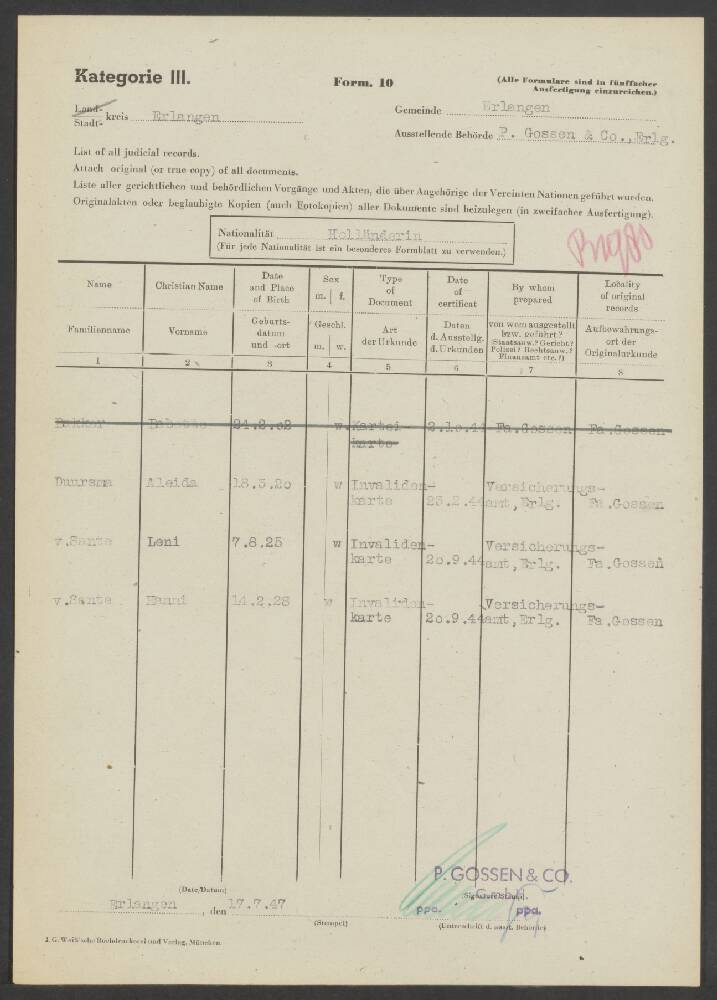 Kategorie III.
Form. 10
(Alle Formulare sind in fünffacher
Ausfertigung einzureichen.)
Land-
Stadt- kreis Erlangen
Gemeinde Erlangen
Ausstellende Behörde P. Gossen & Co., Erlg.
List of all judicial records.
Attach original (or true copy) of all documents.
Liste aller gerichtlichen und behördlichen Vorgänge und Akten, die über Angehörige der Vereinten Nationen geführt wurden.
Originalakten oder beglaubigte Kopien (auch Fotokopien) aller Dokumente sind beizulegen (in zweifacher Ausfertigung).
Nationalität Holländerin
(Für jede Nationalität ist ein besonderes Formblatt zu verwenden.)
Name Christian Name Date and Place of Birth Sex m. f. Type of Document Date of certificat By whom prepared Locality of original records
Familienname Vorname Geburts-datum und -ort Geschl. m. w. Art der Urkunde Daten d. Ausstellg. d. Urkunden von wem ausgestellt bzw. geführt? (Staatsanw.? Gericht? Polizei? Rechtsanw.? Finanzamt etc.?) Aufbewahrungs-ort der Originalurkunde
1 2 3 4 5 6 7 8
w. Kartei 2.10.44 Fa.Gossen Fa.Gossen
karte
Duursma Aleida 18.3.20 w Invaliden- Versicherungs-
karte 23.2.44 amt, Erlg. Fa.Gossen
v.Sante Leni 7.8.25 w Invaliden- Versicherungs-
karte 20.9.44 amt, Erlg. Fa.Gossen
v.Sante Hanni 14.2.28 w Invaliden- Versicherungs-
karte 20.9.44 amt, Erlg. Fa.Gossen
P. GOSSEN & CO.
G.m.b.H.
(Date/Datum)
Erlangen, den 17.7.47
ppa. ppa.
(Stempel)
(Unterschrift d. ausst. Behörde)
J. G. Weiß'sche Buchdruckerei und Verlag, München